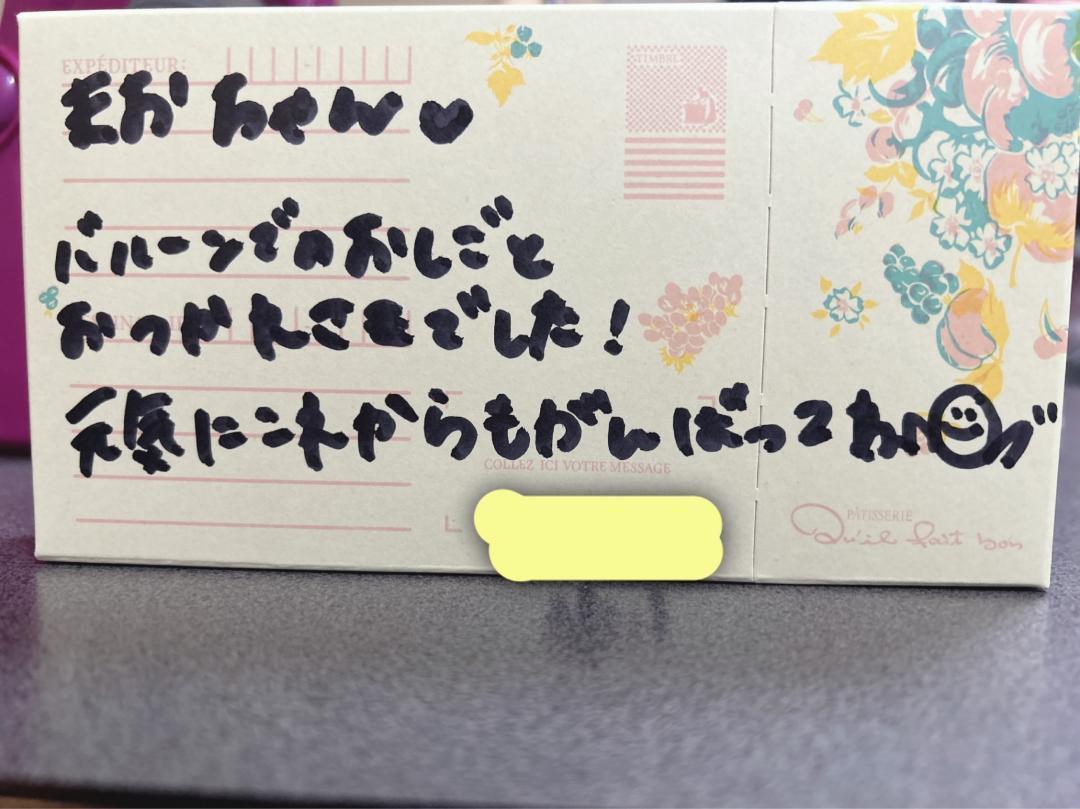 EXPÉDITEUR:
TIMBRE
もおちゃん♡
バルーンでのおしごと
おつかれさまでした!
元気にこれからもがんばってね〜
COLLEZ ICI VOTRE MESSAGE
PÂTISSERIE
Qu'il fait bon